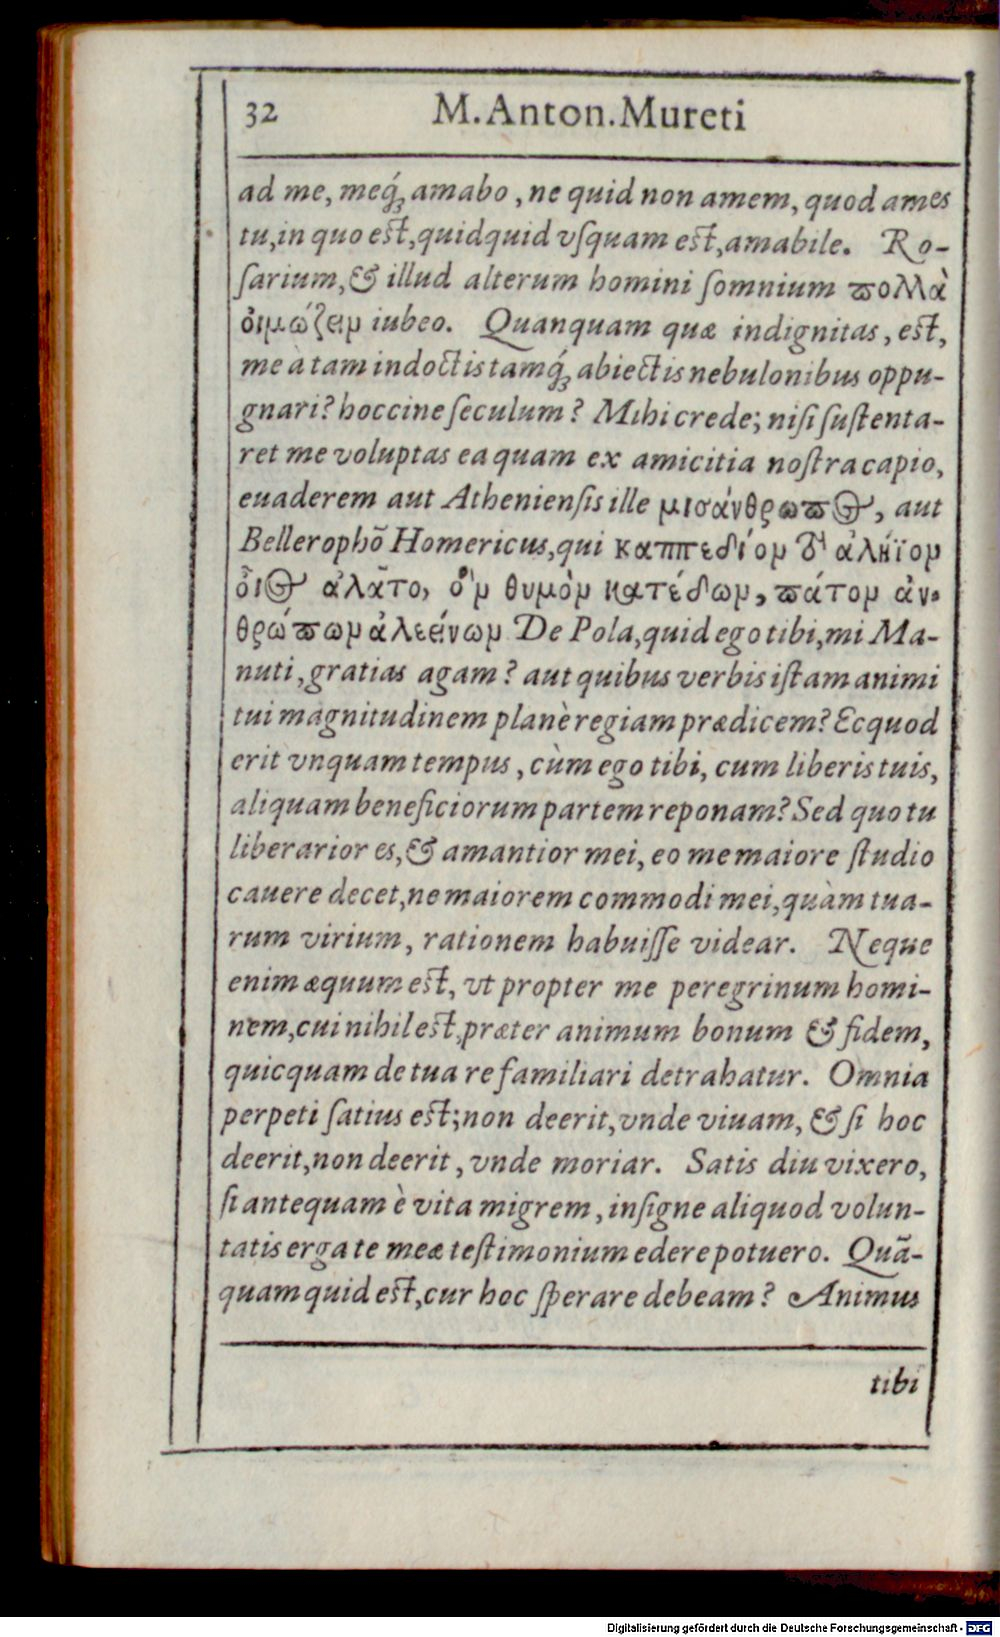 32 M. Anton. Mureti
ad me, meq́ꝫ amabo, ne quid non amem, quod ames
tu, in quo est, quidquid vſquam est, amabile. Ro-
ſarium, & illud alterum homini ſomnium πολλὰ
οἰμώζειν iubeo. Quanquam quæ indignitas, est,
me à tam indoctis tamq́ꝫ abiectis nebulonibus oppu-
gnari? hoccine ſeculum? Mihi crede; niſi ſuſtenta-
ret me voluptas ea quam ex amicitia noſtra capio,
euaderem aut Athenienſis ille μισάνθρωπος, aut
Bellerophō Homericus, qui καππεδίον τὸ ἀλήϊον
οἶος ἀλᾶτο, ὃν θυμὸν κατέδων, πάτον ἀν-
θρώπων ἀλεείνων De Pola, quid ego tibi, mi Ma-
nuti, gratias agam? aut quibus verbis iſtam animi
tui magnitudinem planè regiam prædicem? Ecquod
erit vnquam tempus, cùm ego tibi, cum liberis tuis,
aliquam beneficiorum partem reponam? Sed quo tu
liberarior es, & amantior mei, eo me maiore ſtudio
cauere decet, ne maiorem commodi mei, quàm tua-
rum virium, rationem habuiſſe videar. Neque
enim æquum est, vt propter me peregrinum homi-
nem, cui nihil est, præter animum bonum & fidem,
quicquam de tua re familiari detrahatur. Omnia
perpeti ſatius est; non deerit, vnde viuam, & ſi hoc
deerit, non deerit, vnde moriar. Satis diu vixero,
ſi antequam è vita migrem, inſigne aliquod volun-
tatis erga te meæ teſtimonium edere potuero. Quā-
quam quid est, cur hoc ſperare debeam? Animus
tibi
Digitalisierung gefördert durch die Deutsche Forschungsgemeinschaft - DFG